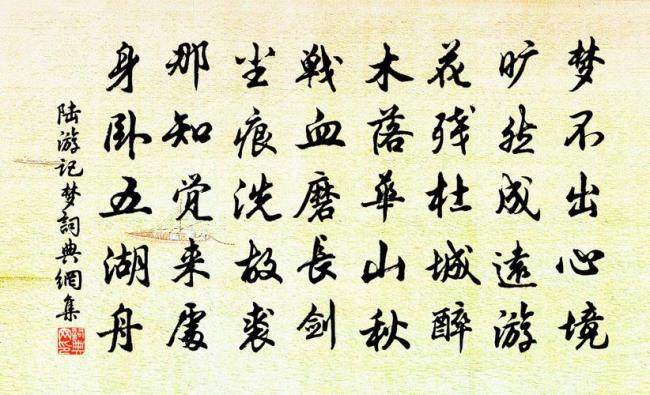 梦不出心境
旷然成遠游
花残杜城醉
木落華山秋
戦血磨長剑
尘痕洗故裘
那知觉来處
身卧五湖舟
陆游记梦詞典網集